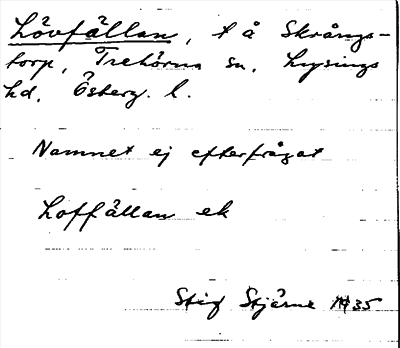 Lövfällan, t å Skrångs-
torp, Trehörna sn. Lysings
hd. Österg. l.
Namnet ej efterfrågat
Loffällan ek
Stig Stjärne 1935